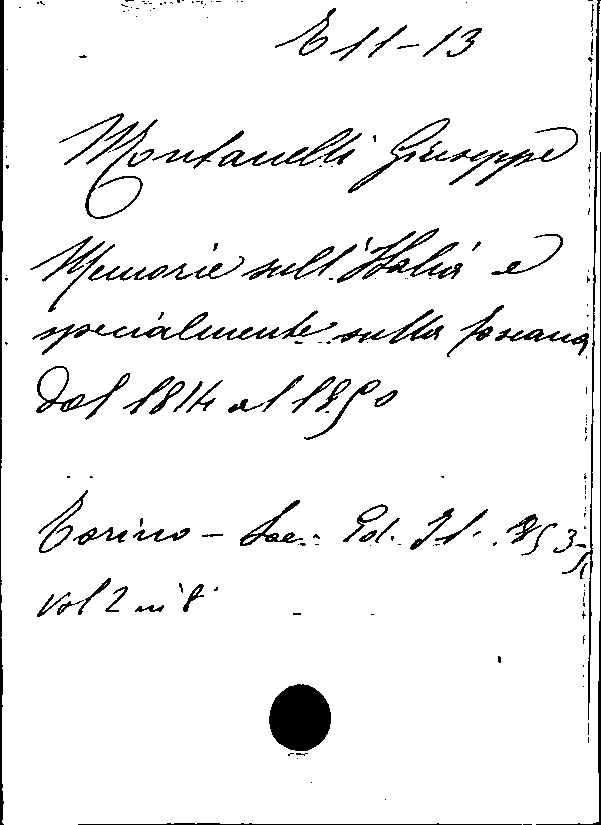 E 11-13
Montanelli Giuseppe
Memorie sull'Italia e
specialmente sulla Toscana
dal 1814 al 1850
Torino - Soc. Ed. It. 1853-
vol 2 in 8°